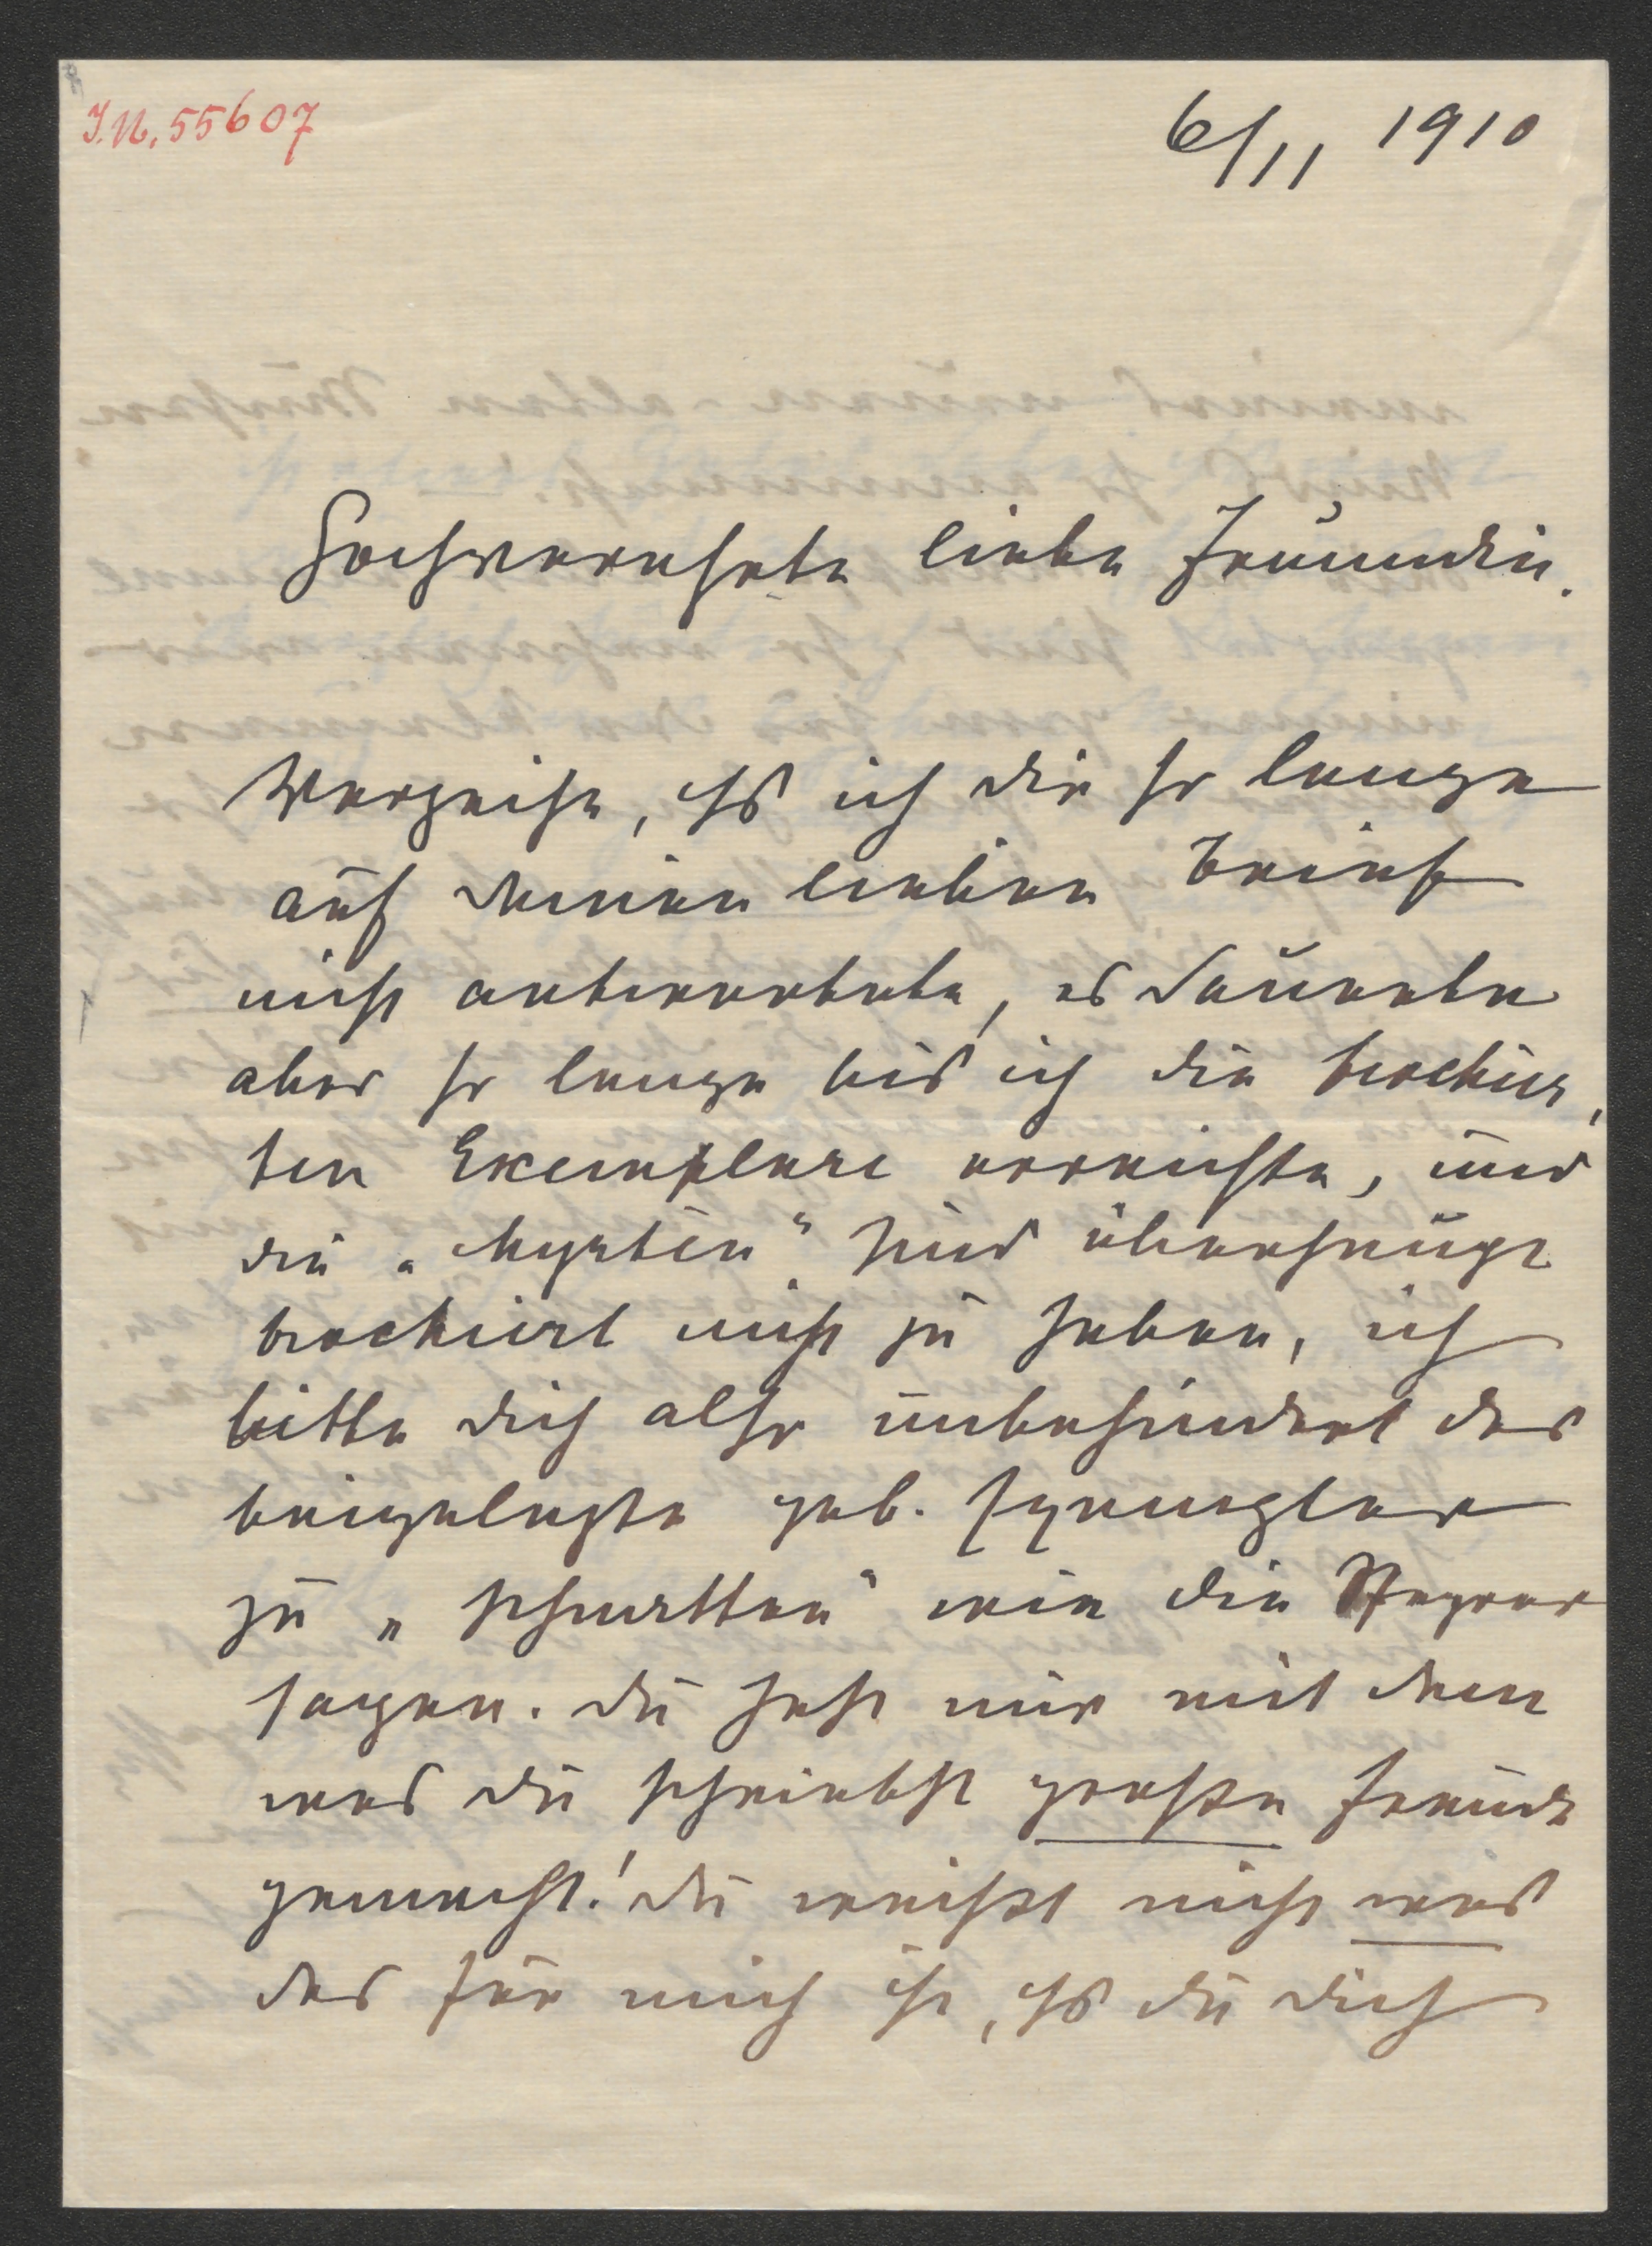 I.N. 55607
6/11 1910
Hochverehrte liebe Freundin.
Verzeihe, dß ich dir so lange
auf deinen lieben Brief
nicht antwortete, es dauerte
aber so lange bis ich die brochir,
ten Exemplare erreichte, und
die „Myrten" sind überhaupt
brochirt nicht zu haben, ich
bitte dich also unbehindert das
beigelegte geb. Exemplar
zu „schnetten" wie die Steyrer
sagen. Du hast mir mit dem
was du schriebst große Freude
gemacht! Du weißt nicht was
das für mich ist, dß du dich